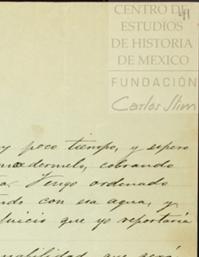 41
CENTRO DE
ESTUDIOS
DE HISTORIA
DE MEXICO
FUNDACIÓN
Carlos Slim
y poco tiempo, y espero
cobrando
Tengo ordenado
con esa agua, y
juicio que yo reportaria
que será